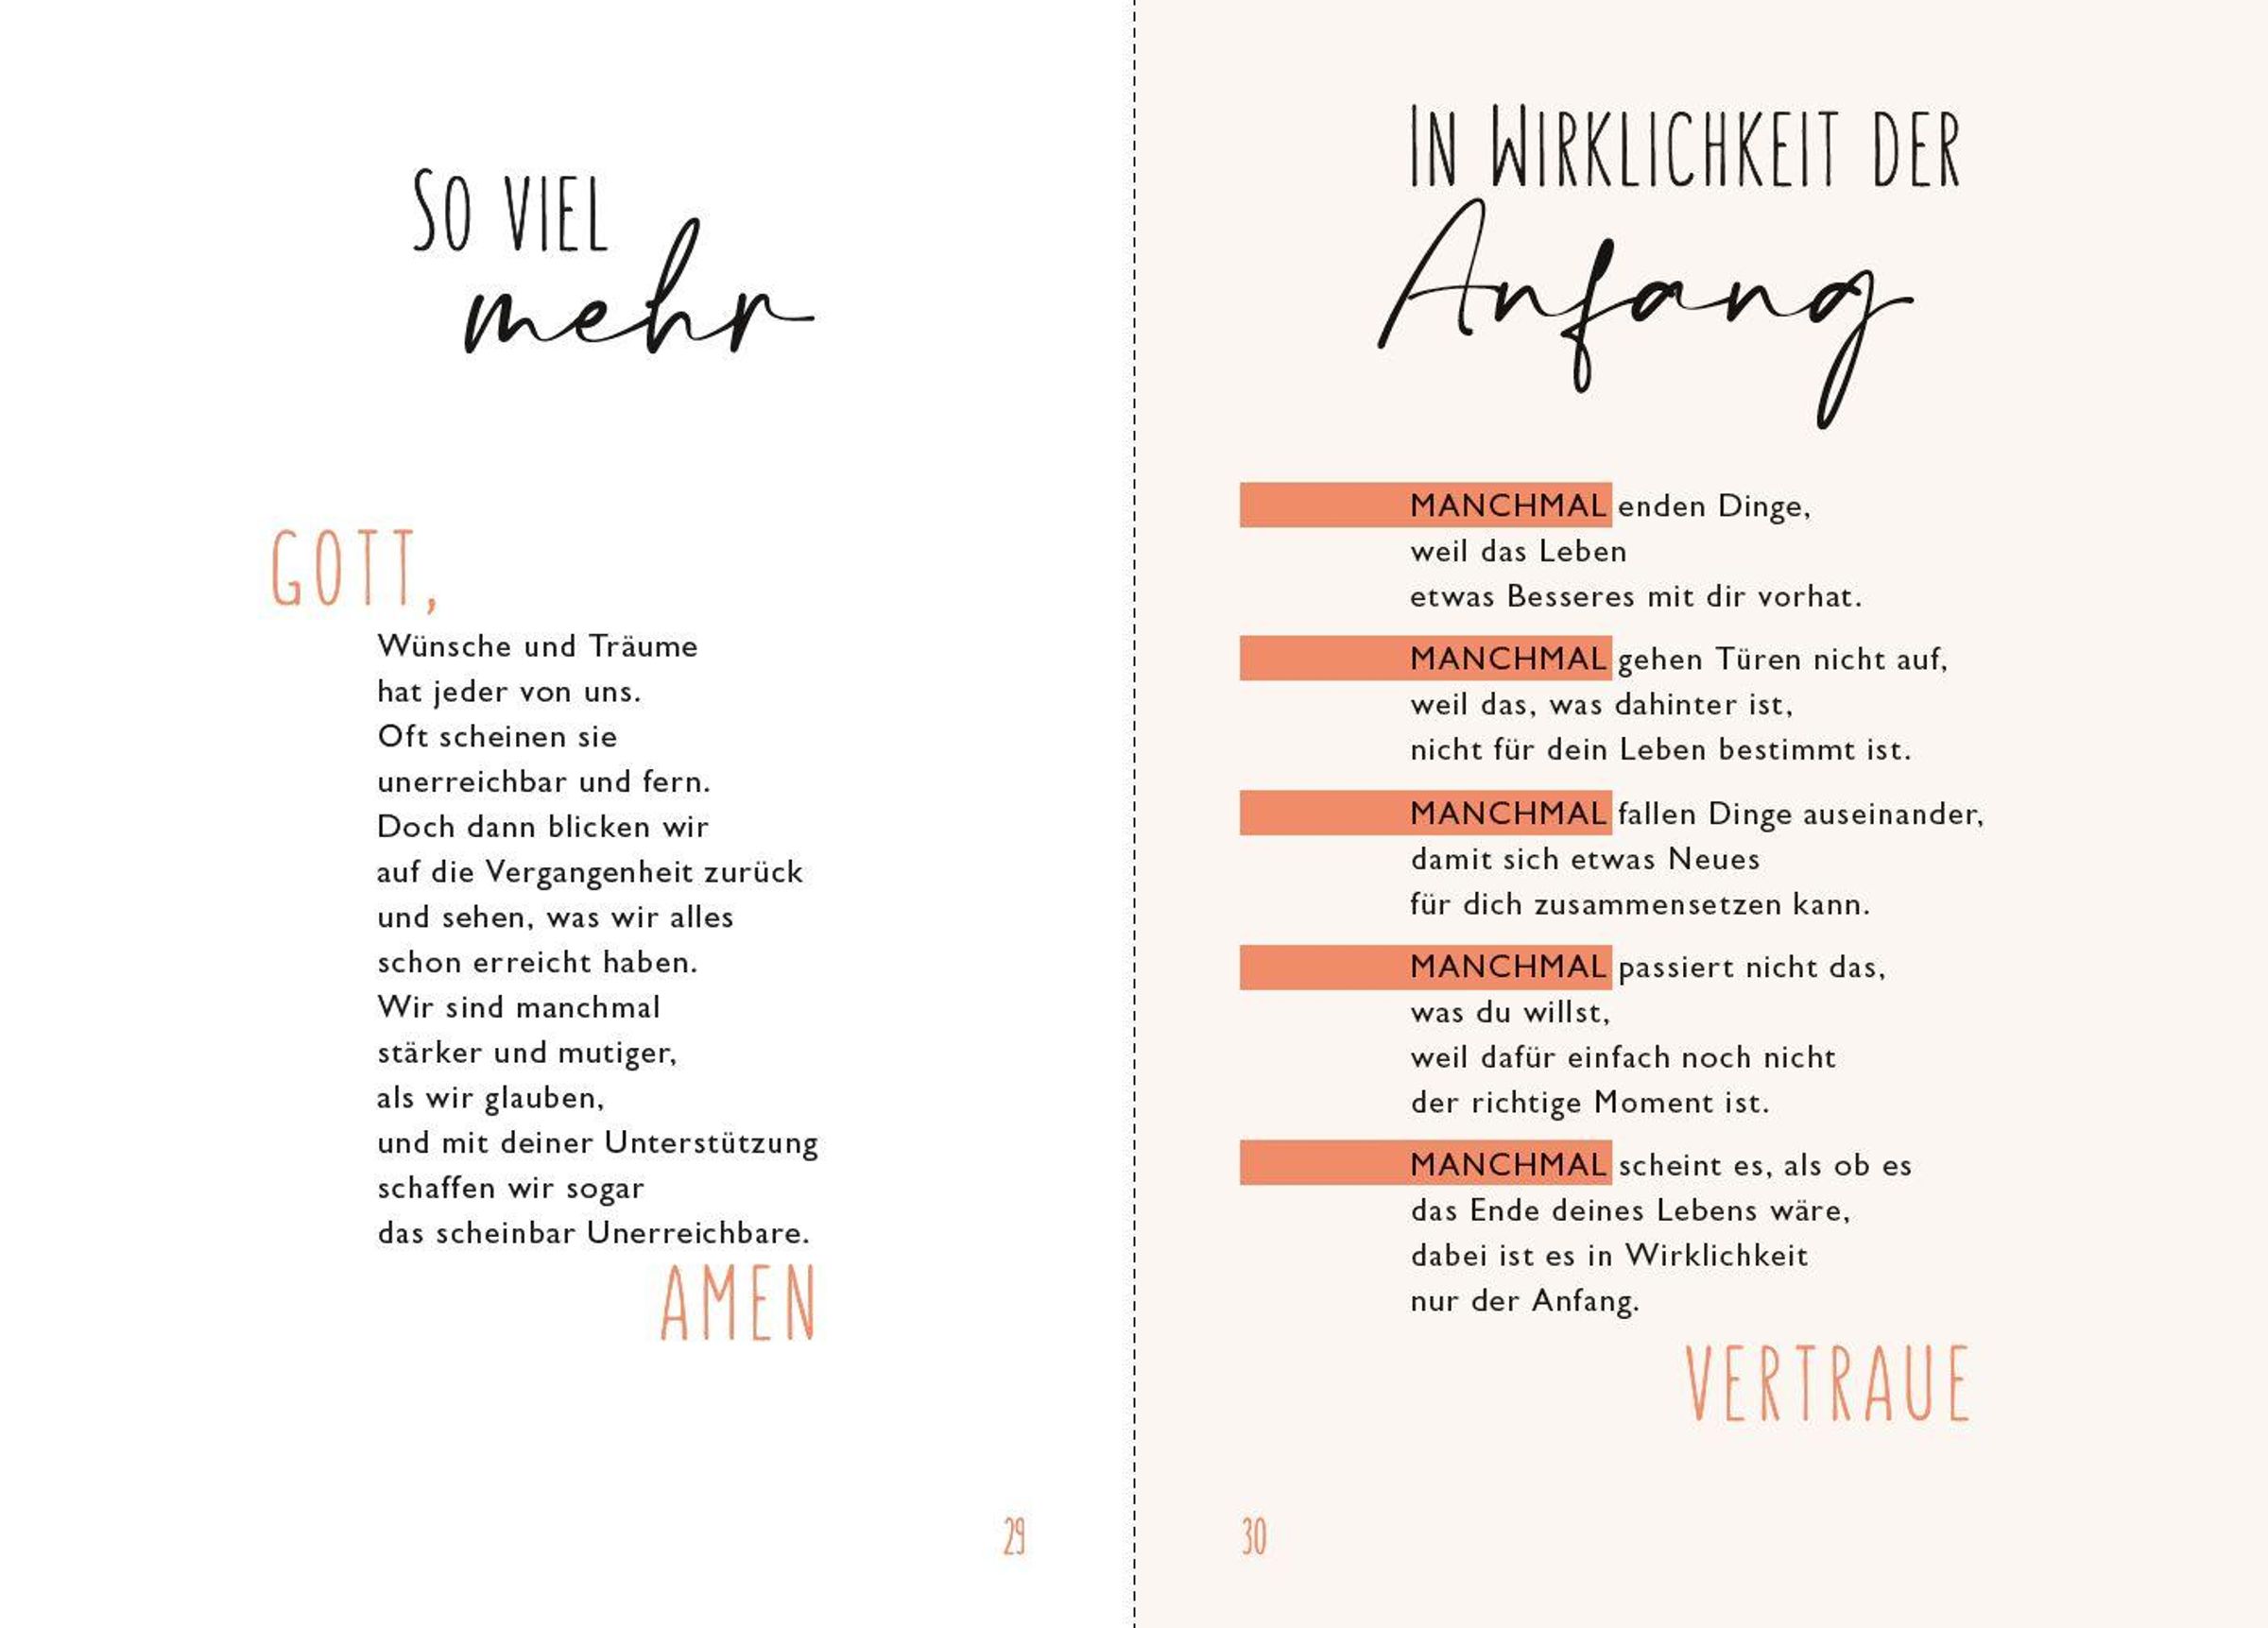 SO VIEL
mehr
GOTT,
Wünsche und Träume
hat jeder von uns.
Oft scheinen sie
unerreichbar und fern.
Doch dann blicken wir
auf die Vergangenheit zurück
und sehen, was wir alles
schon erreicht haben.
Wir sind manchmal
stärker und mutiger,
als wir glauben,
und mit deiner Unterstützung
schaffen wir sogar
das scheinbar Unerreichbare.
AMEN
29
IN WIRKLICHKEIT DER
Anfang
MANCHMAL enden Dinge,
weil das Leben
etwas Besseres mit dir vorhat.
MANCHMAL gehen Türen nicht auf,
weil das, was dahinter ist,
nicht für dein Leben bestimmt ist.
MANCHMAL fallen Dinge auseinander,
damit sich etwas Neues
für dich zusammensetzen kann.
MANCHMAL passiert nicht das,
was du willst,
weil dafür einfach noch nicht
der richtige Moment ist.
MANCHMAL scheint es, als ob es
das Ende deines Lebens wäre,
dabei ist es in Wirklichkeit
nur der Anfang.
VERTRAUE
30